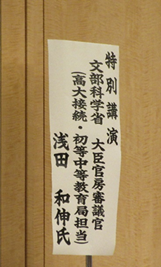 特別講演
文部科学省　大臣官房審議官
(高大接続・初等中等教育局担当)
浅田　和伸氏